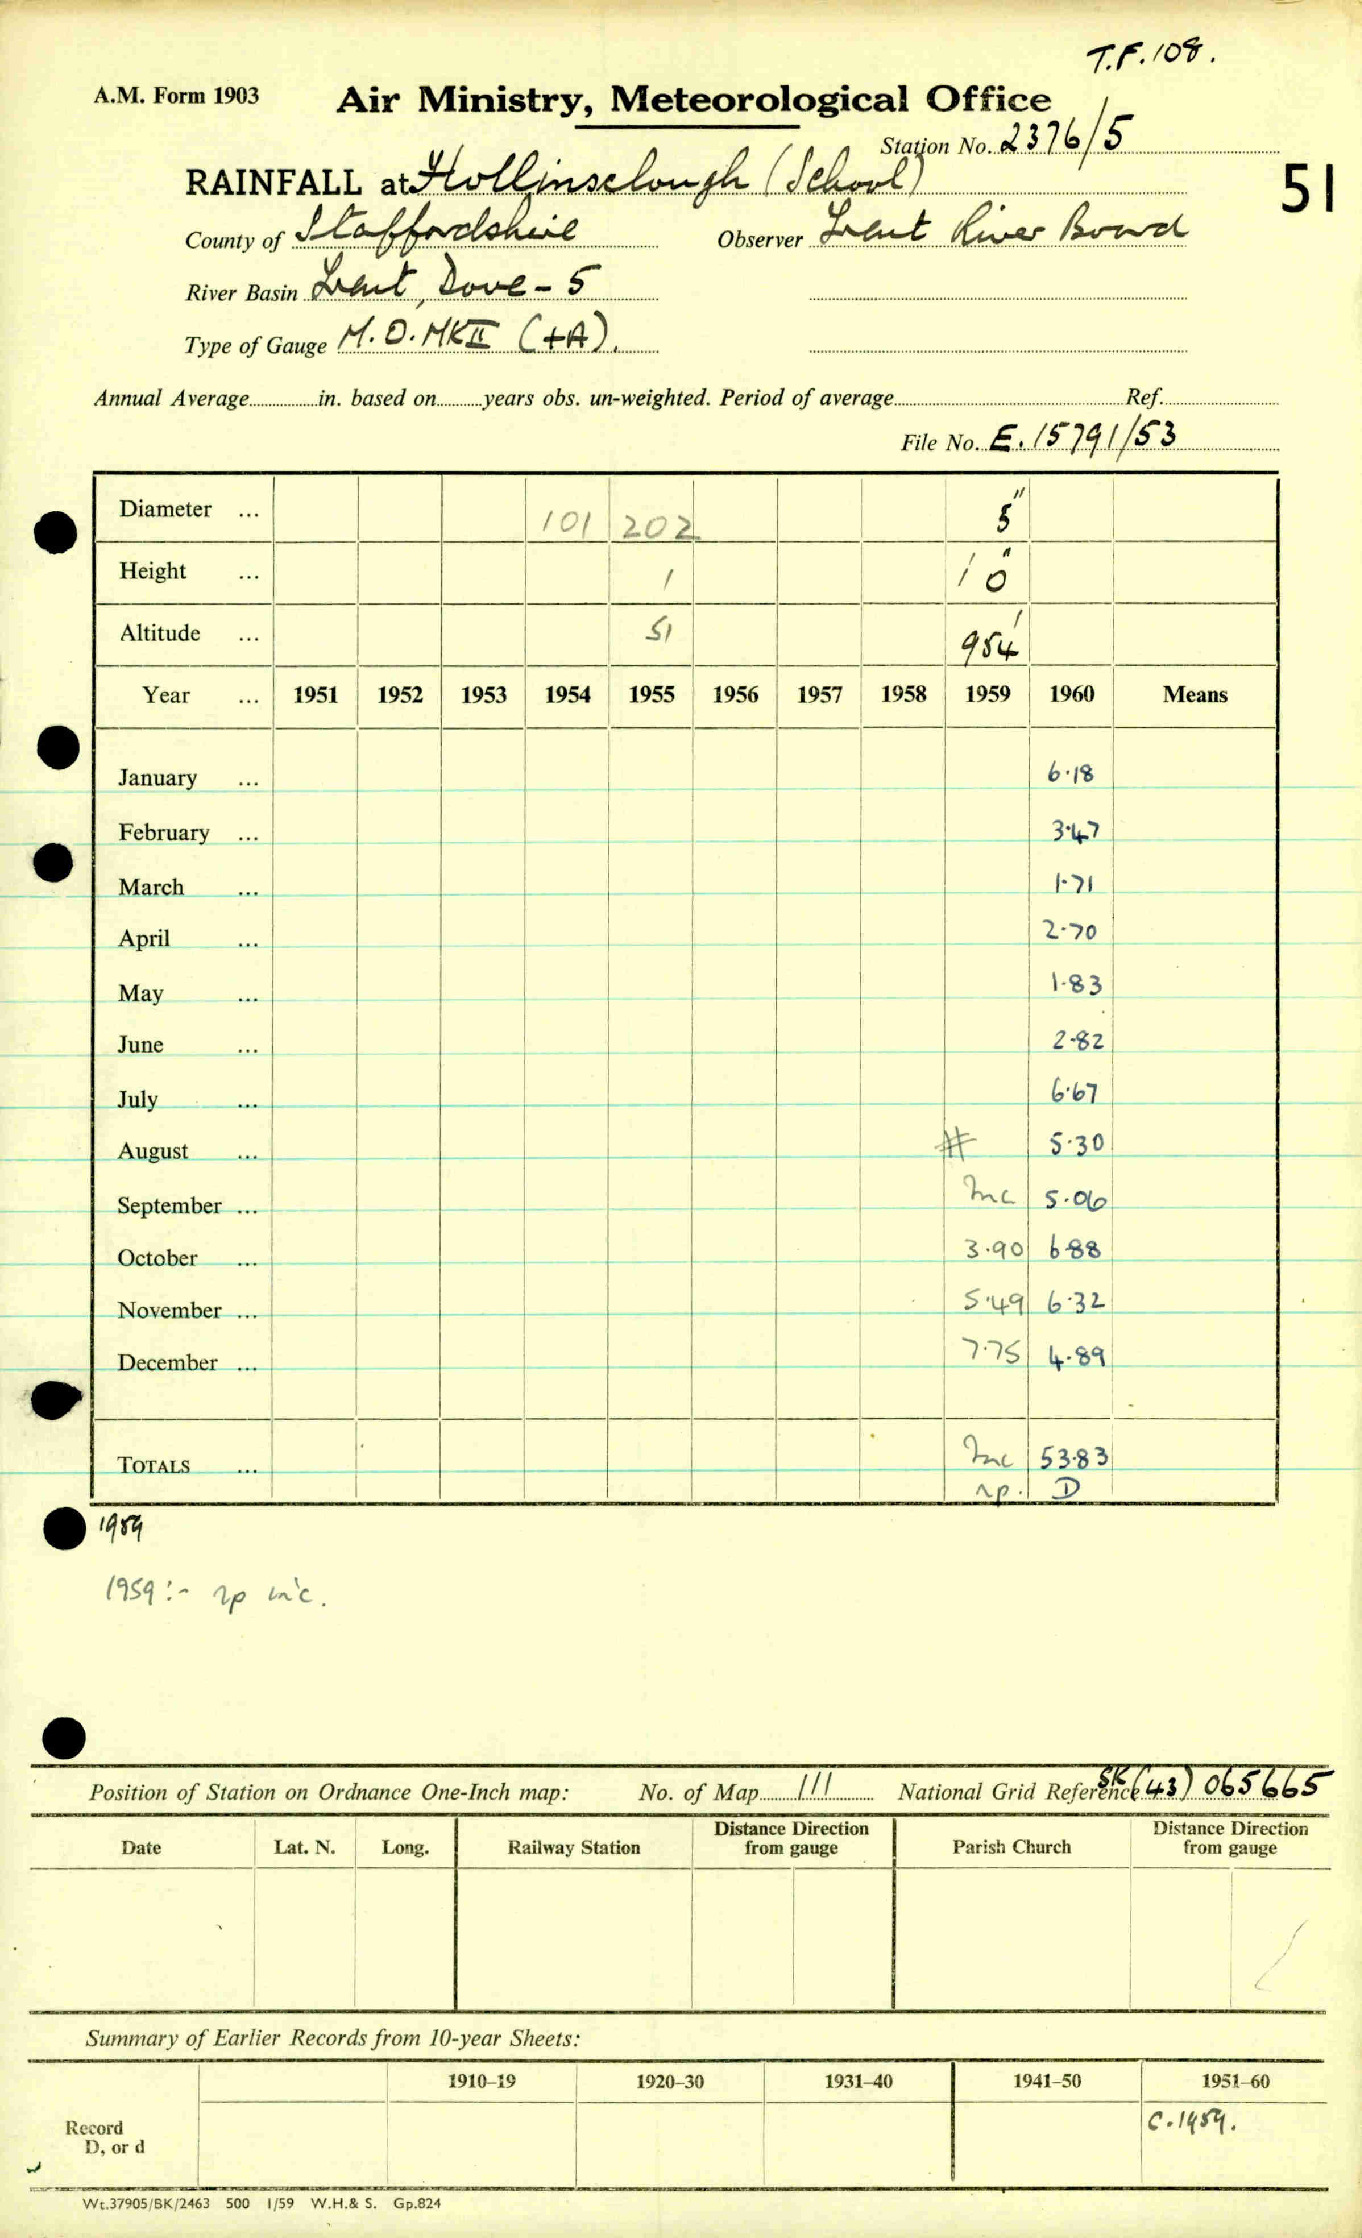 T.F. 108.
A.M. Form 1903
Air Ministry, Meteorological Office
Station No. 2376/5
RAINFALL at Hollinsclough (School)
51
County of Staffordshire Observer Trent River Board
River Basin Trent, Dove - 5
Type of Gauge M.O. MK II (+A).
Annual Average in. based on years obs. un-weighted. Period of average Ref.
File No. E. 15791/53
Diameter ... 101 202 5"
Height ... 1 1' 0"
Altitude ... 51 954'
Year ... 1951 1952 1953 1954 1955 1956 1957 1958 1959 1960 Means
January ... 6.18
February ... 3.47
March ... 1.71
April ... 2.70
May ... 1.83
June ... 2.82
July ... 6.67
August ... # 5.30
September ... Inc 5.06
October ... 3.90 6.88
November ... 5.49 6.32
December ... 7.75 4.89
TOTALS ... Inc 53.83
np. D
1959
1959:- np inc.
Position of Station on Ordnance One-Inch map: No. of Map 111 National Grid Reference SK (43) 065665
Date Lat. N. Long. Railway Station Distance Direction from gauge Parish Church Distance Direction from gauge
Summary of Earlier Records from 10-year Sheets:
1910–19 1920–30 1931–40 1941–50 1951–60
Record
D, or d
C. 1959.
Wt.37905/BK/2463 500 1/59 W.H.& S. Gp.824